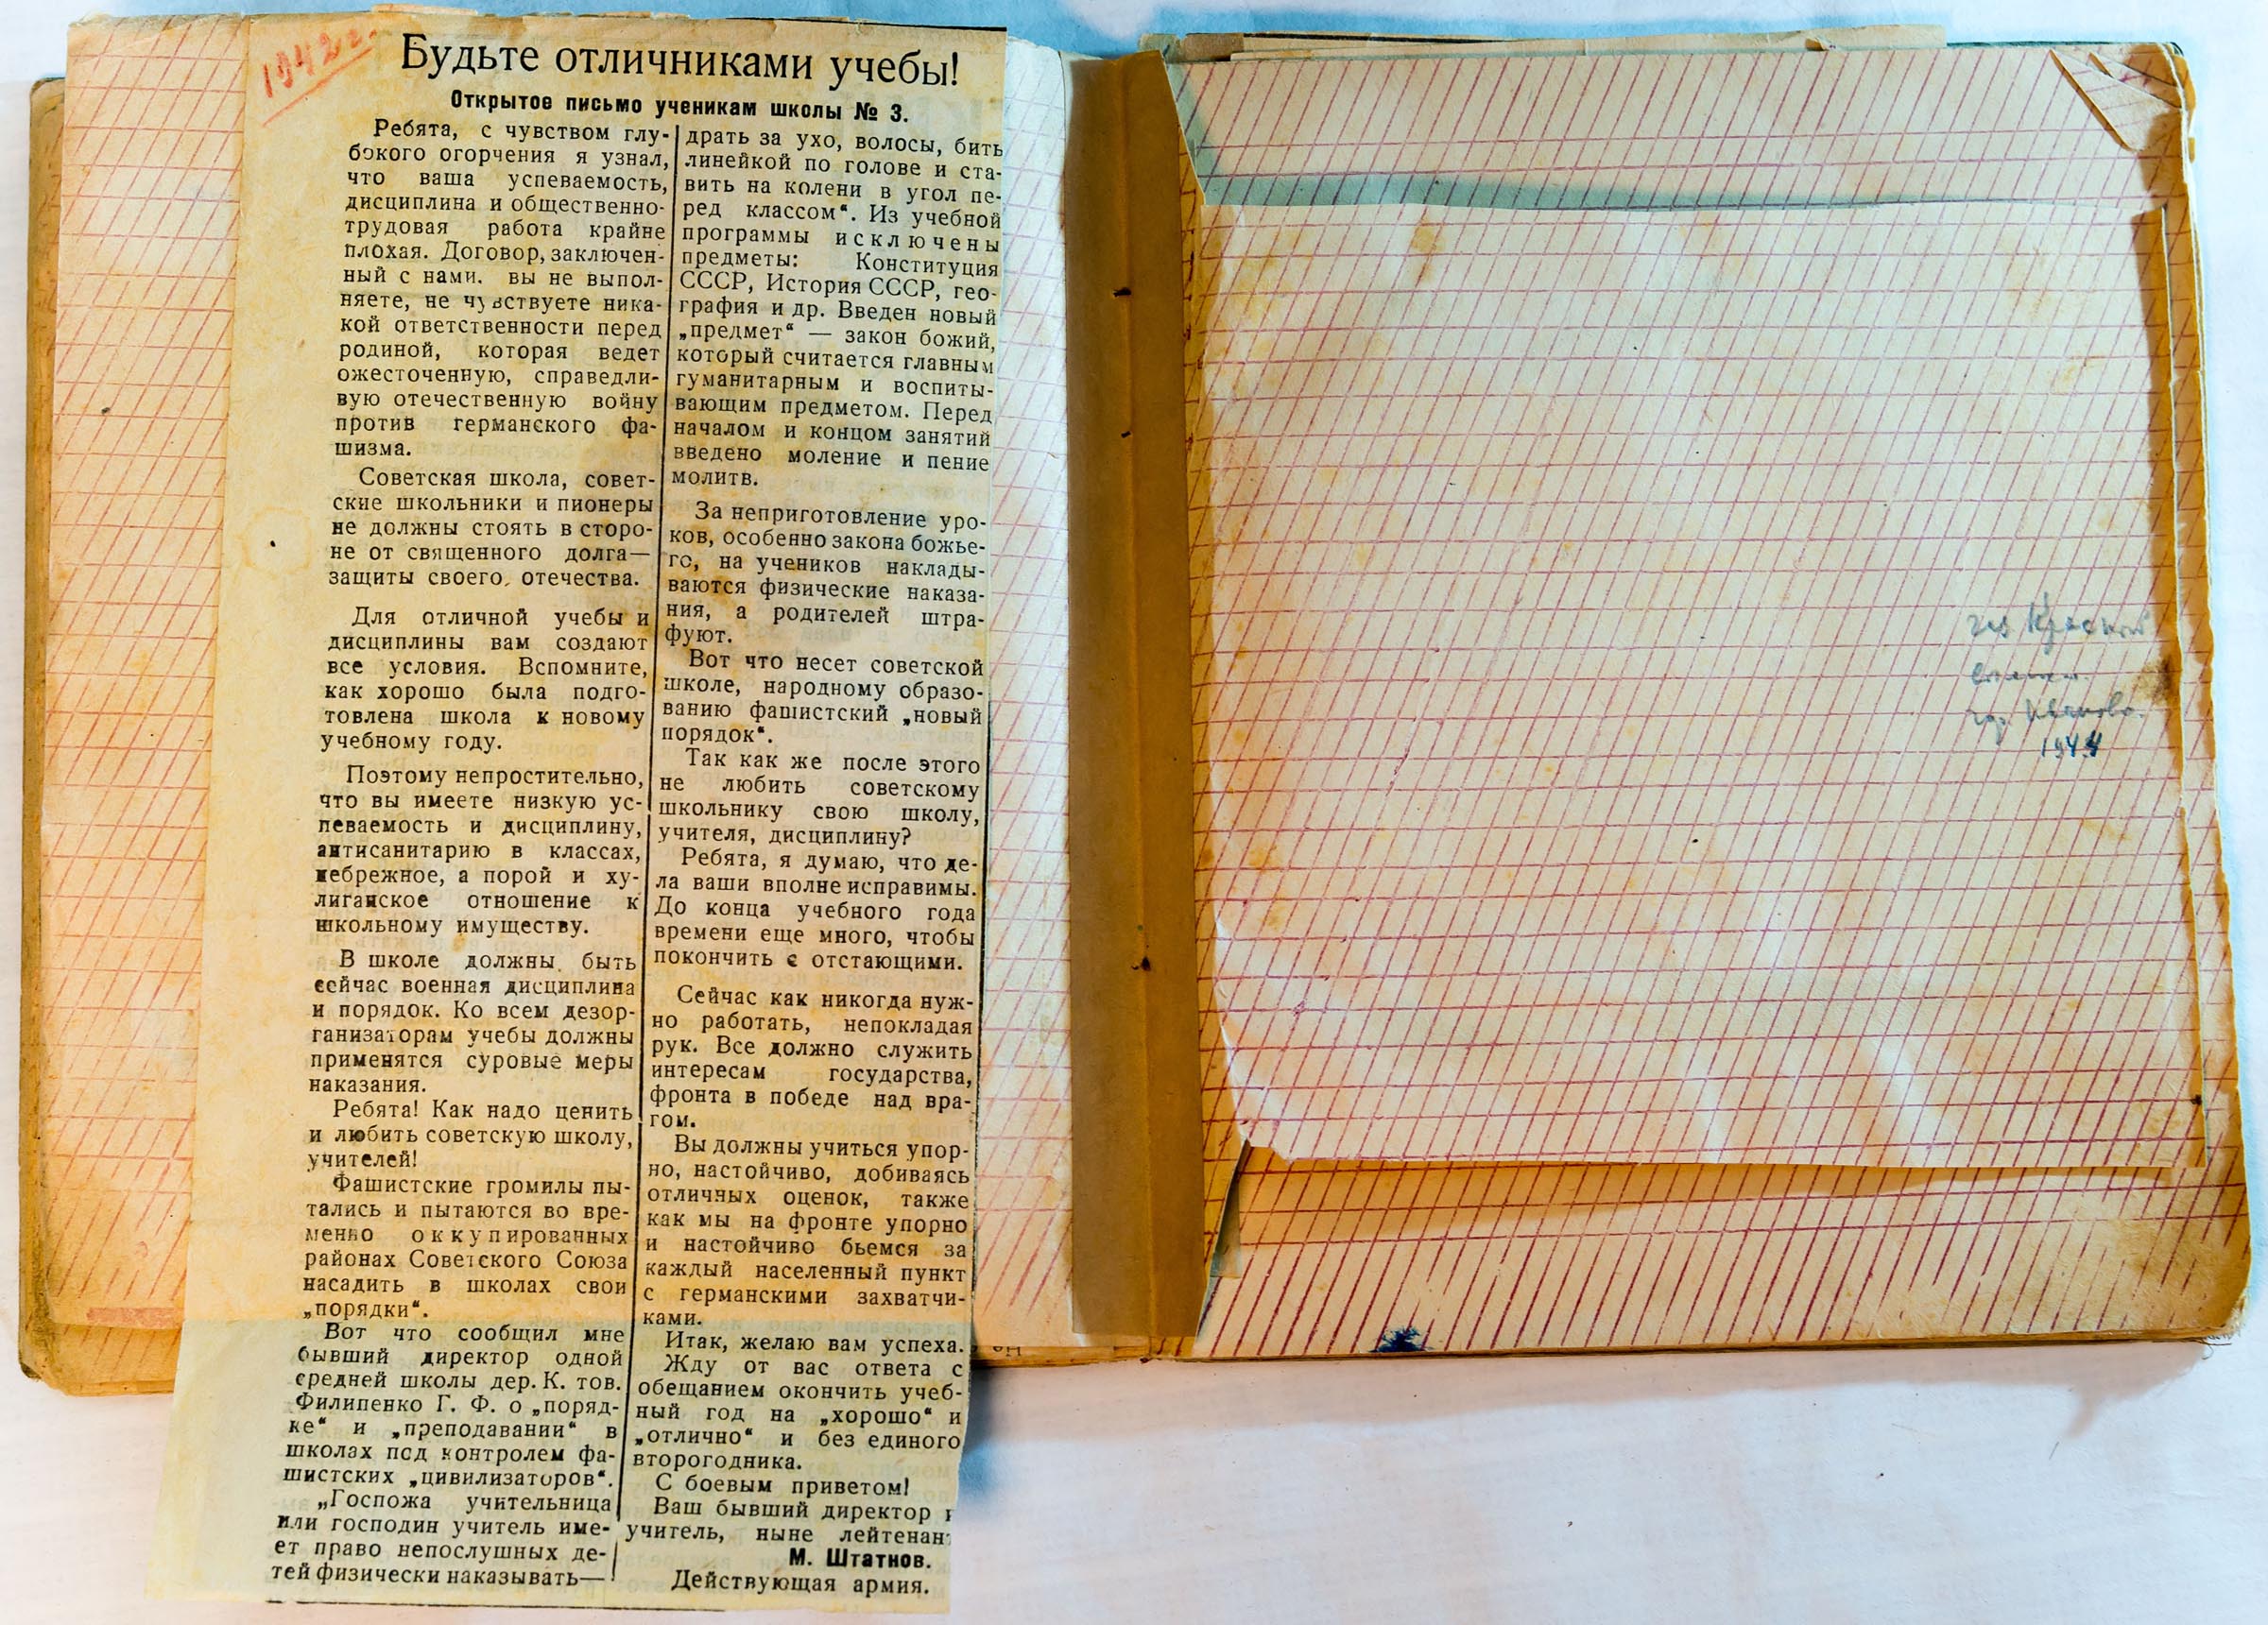 1942 г.
Будьте отличниками учебы!
Открытое письмо ученикам школы № 3.
Ребята, с чувством глу-
бокого огорчения я узнал,
что ваша успеваемость,
дисциплина и общественно-
трудовая работа крайне
плохая. Договор, заключен-
ный с нами. вы не выпол-
няете, не чувствуете ника-
кой ответственности перед
родиной, которая ведет
ожесточенную, справедли-
вую отечественную войну
против германского фа-
шизма.
Советская школа, совет-
ские школьники и пионеры
не должны стоять в сторо-
не от священного долга—
защиты своего, отечества.
Для отличной учебы и
дисциплины вам создают
все условия. Вспомните,
как хорошо была подго-
товлена школа к новому
учебному году.
Поэтому непростительно,
что вы имеете низкую ус-
певаемость и дисциплину,
антисанитарию в классах,
небрежное, а порой и ху-
лиганское отношение к
школьному имуществу.
В школе должны быть
сейчас военная дисциплина
и порядок. Ко всем дезор-
ганизаторам учебы должны
применятся суровые меры
наказания.
Ребята! Как надо ценить
и любить советскую школу,
учителей!
Фашистские громилы пы-
тались и пытаются во вре-
менно оккупированных
районах Советского Союза
насадить в школах свои
„порядки“.
Вот что сообщил мне
бывший директор одной
средней школы дер. К. тов.
Филипенко Г. Ф. о „поряд-
ке“ и „преподавании“ в
школах под контролем фа-
шистских „цивилизаторов“.
„Госпожа учительница
или господин учитель име-
ет право непослушных де-
тей физически наказывать—
драть за ухо, волосы, бить
линейкой по голове и ста-
вить на колени в угол пе-
ред классом“. Из учебной
программы исключены
предметы: Конституция
СССР, История СССР, гео-
графия и др. Введен новый
„предмет“ — закон божий,
который считается главным
гуманитарным и воспиты-
вающим предметом. Перед
началом и концом занятий
введено моление и пение
молитв.
За неприготовление уро-
ков, особенно закона божье-
го, на учеников наклады-
ваются физические наказа-
ния, а родителей штра-
фуют.
Вот что несет советской
школе, народному образо-
ванию фашистский „новый
порядок“.
Так как же после этого
не любить советскому
школьнику свою школу,
учителя, дисциплину?
Ребята, я думаю, что де-
ла ваши вполне исправимы.
До конца учебного года
времени еще много, чтобы
покончить с отстающими.
Сейчас как никогда нуж-
но работать, непокладая
рук. Все должно служить
интересам государства,
фронта в победе над вра-
гом.
Вы должны учиться упор-
но, настойчиво, добиваясь
отличных оценок, также
как мы на фронте упорно
и настойчиво бьемся за
каждый населенный пункт
с германскими захватчи-
ками.
Итак, желаю вам успеха.
Жду от вас ответа с
обещанием окончить учеб-
ный год на „хорошо“ и
„отлично“ и без единого
второгодника.
С боевым приветом!
Ваш бывший директор
учитель, ныне лейтенант
М. Штатнов.
Действующая армия.
1944